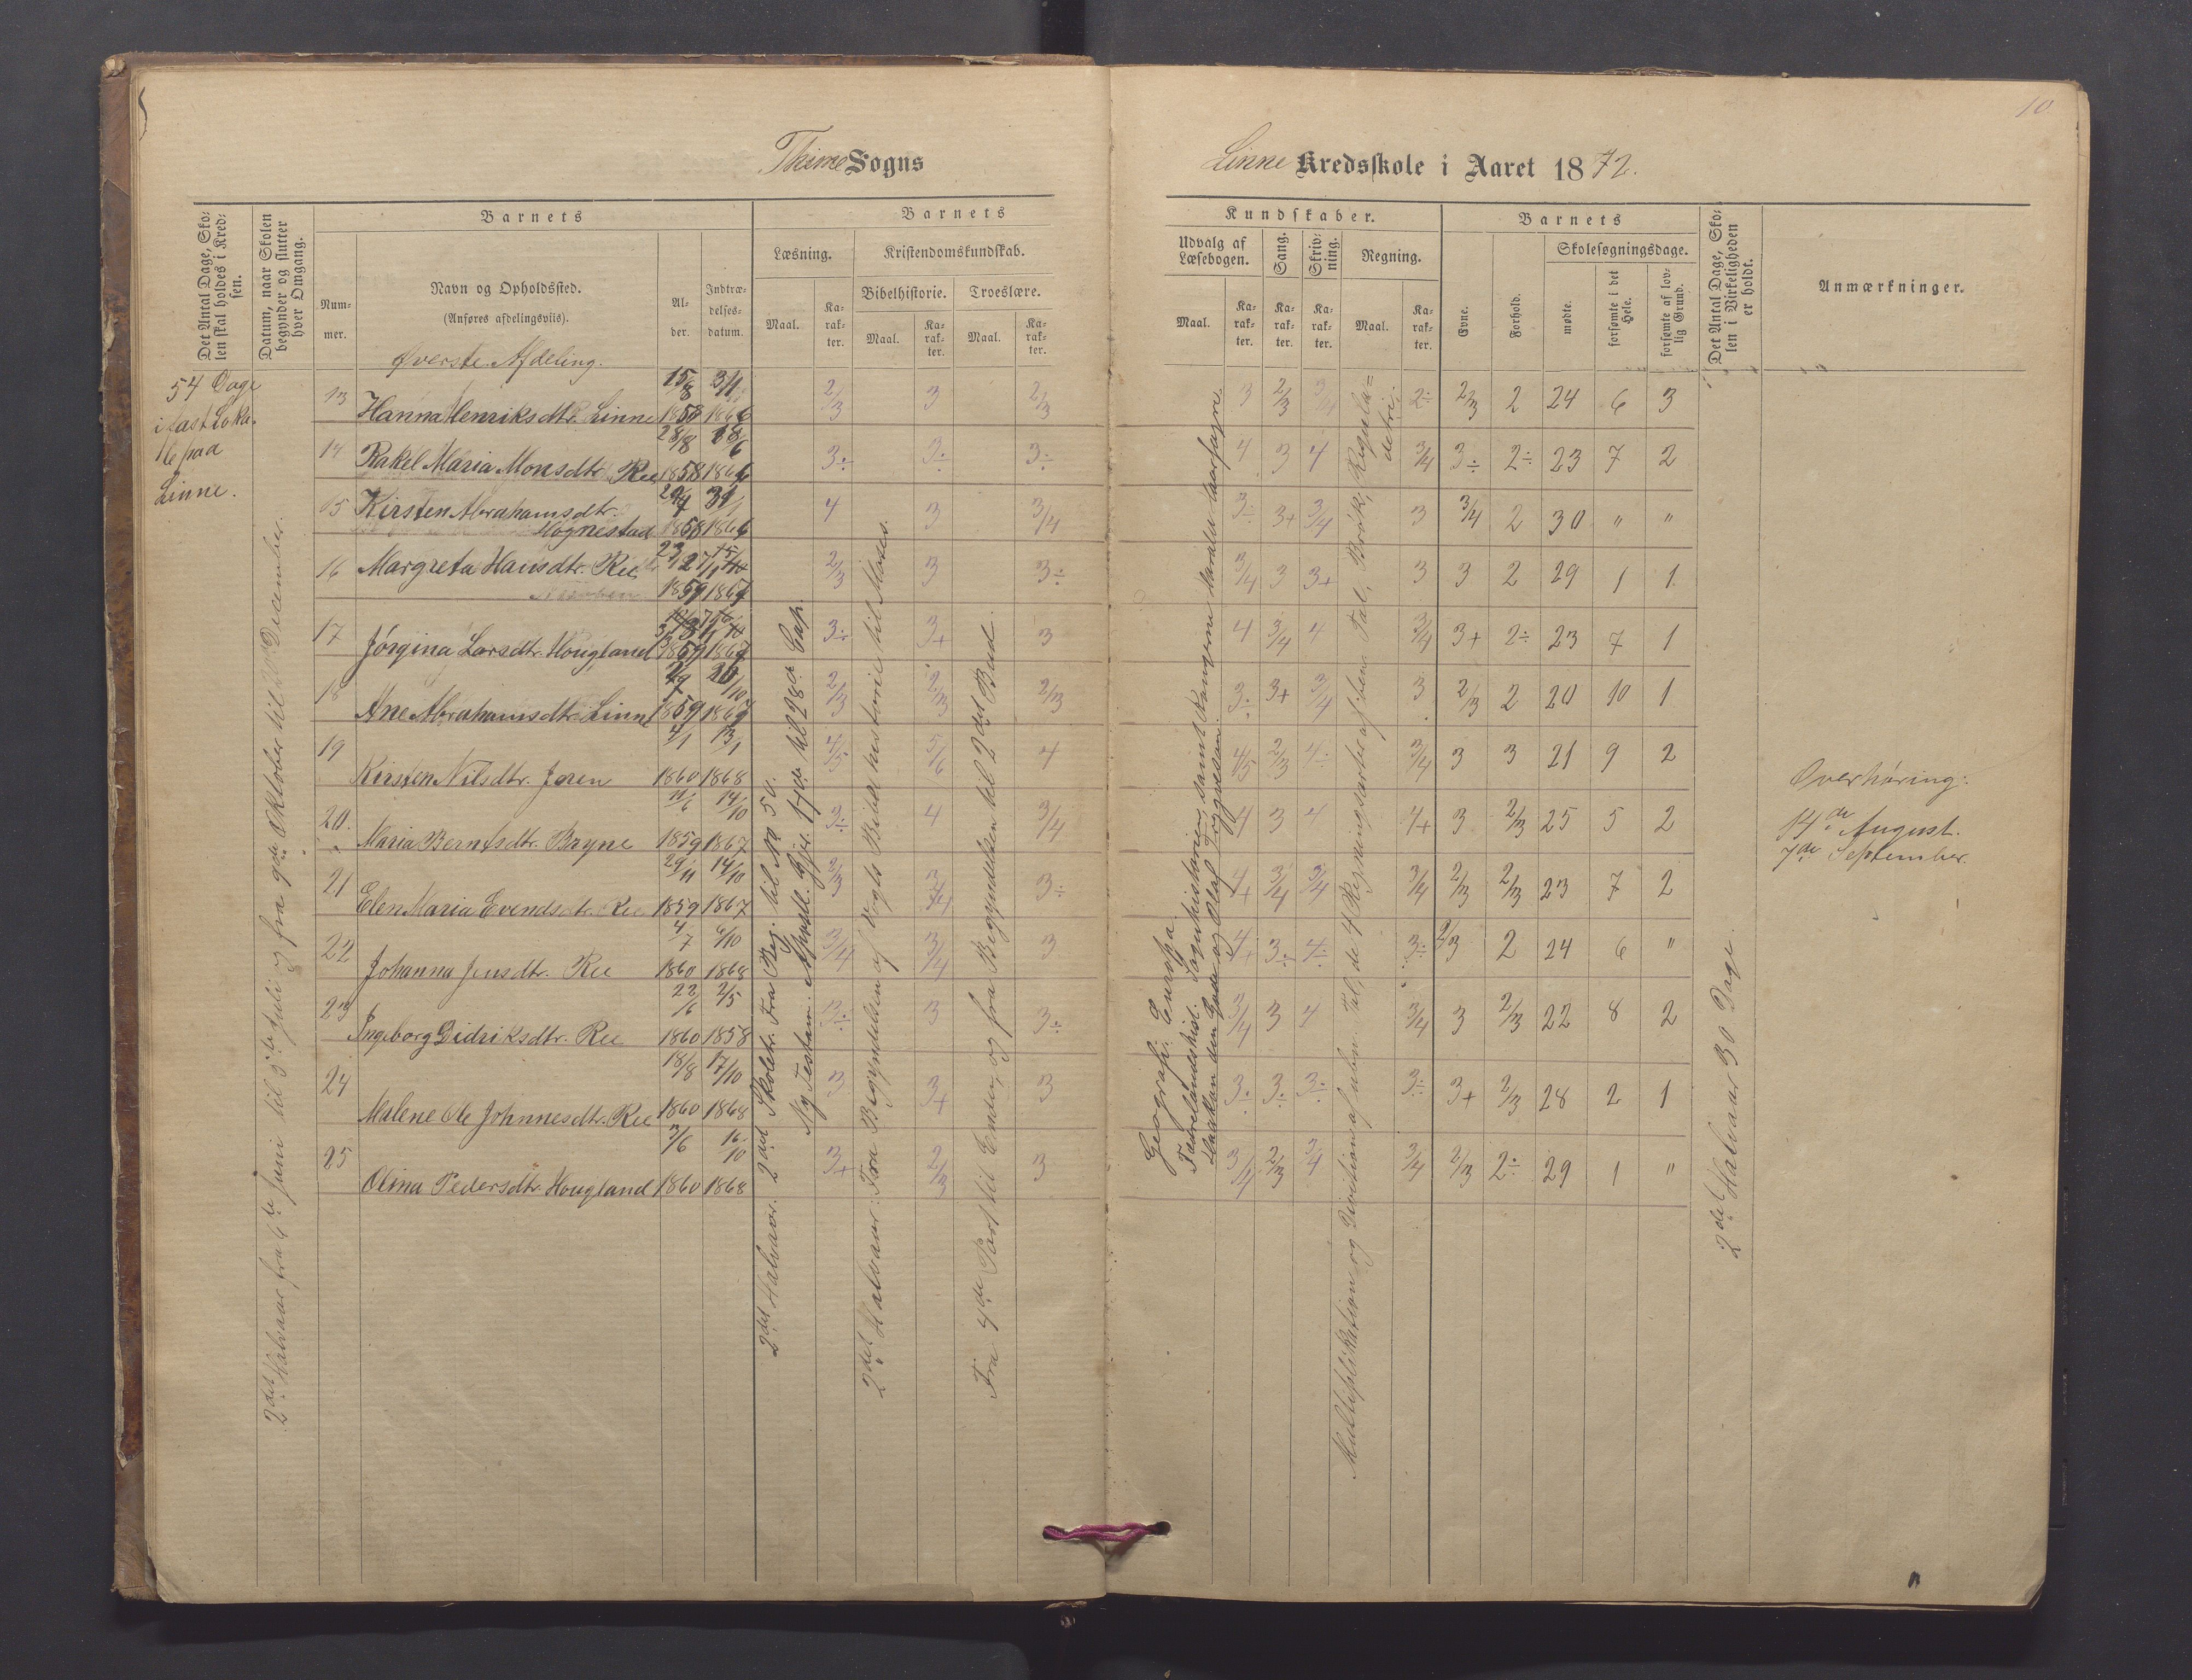 10
Thime Sogns
Linne Kredsskole i Aaret 1872.
Det Antal Dage, Sko-
len skal holdes i Kred-
sen.
Datum, naar Skolen
begynder og slutter
hver Omgang.
Barnets
Num-
mer.
Navn og Opholdssted.
(Anføres afdelingsviis).
Al-
der.
Indtræ-
delses-
datum.
Barnets
Læsning.
Maal.
Ka-
rak-
ter.
Kristendomskundskab.
Bibelhistorie.
Maal.
Ka-
rak-
ter.
Troeslære.
Maal.
Ka-
rak-
ter.
Kundskaber.
Udvalg af
Læsebogen.
Maal.
Ka-
rak-
ter.
Sang.
Ka-
rak-
ter.
Skriv-
ning.
Ka-
rak-
ter.
Regning.
Maal.
Ka-
rak-
ter.
Barnets
Evne.
Forhold.
Skolesøgningsdage.
mødte.
forsømte i det
Hele.
forsømte af lov-
lig Grund.
Det Antal Dage, Sko-
len i Virkeligheden
er holdt.
Anmærkninger.
Øverste Afdeling.
54 Dage
i fast Loka-
le paa
Linne.
2det Halvaar fra 6te Juni til 3die Juli og fra 9de Oktober til December.
13 Hanna Henriksdtr. Linne 15/8 1858 3/1 1866 2/3 3 2/3 3 2/3 2÷ 2/3 2 24 6 3
14 Rakel Maria Monsdtr. Ree 28/8 1858 1866 3÷ 3÷ 3÷ 4 3 4 3/4 3÷ 2÷ 23 7 2
15 Kirsten Abrahamsdtr.
Hognestad 1858 1866 4 3 3/4 3÷ 3+ 3/4 3 3/4 2 30 " "
16 Margreta Hansdtr. Ree 1859 1867 2/3 3 3÷ 3/4 3 3+ 3 3 2 29 1 1
17 Jørgina Larsdtr. Hougland 1859 1867 3÷ 3+ 3 4 3/4 4 3/4 3+ 2÷ 23 7 1
18 Ane Abrahamsdtr. Linne 1859 20/10 1867 2/3 2/3 2/3 3÷ 3+ 3/4 3 2/3 2 20 10 1
19 Kirsten Nilsdtr. Joren 4/1 1860 13/1 1868 4/5 5/6 4 4/5 2/3 4÷ 3/4 3 3 21 9 2
20. Maria Berntsdtr. Bryne 11/6 1859 14/10 1867 3÷ 4 3/4 4 3 4 4+ 3 2/3 25 5 2
21 Elen Maria Evendsdtr. Ree 29/11 1859 14/10 1867 2/3 3/4 3÷ 4+ 3/4 3/4 3/4 2/3 2/3 23 7 2
22 Johanna Jensdtr. Ree 4/7 1860 6/10 1868 3/4 3/4 3 4+ 3÷ 4÷ 3÷ 2/3 2 24 6 "
23 Ingeborg Didriksdtr. Ree 22/6 1860 2/5 1858 3÷ 3 3÷ 3/4 3 4 3/4 3 2/3 22 8 2
24 Malene Ole Johnnesdtr. Ree 18/8 1860 17/10 1868 3 3+ 3 3÷ 3÷ 3÷ 3÷ 3+ 2/3 28 2 1
25 Olina Pedersdtr. Hougland 3/6 1860 16/10 1868 3+ 2/3 3 3/4 2/3 3/4 3/4 2/3 2÷ 29 1 "
2det Halvaar. 2det Skoletr. Fra Beg. til No 50.
Ny Testam. Apostl. Gjer. 17de til 28de Cap.
2det Halvaar: Fra Begyndelsen af Vogts Bibelhistorie til Moses.
Fra 4de Part til Enden, og fra Begyndelsen til 2det Bud.
Geografi: Europa.
Fædrelandshist. Sagnhistorien, samt Kongerne Harald Haarfagre,
Haakon den Gode og Olaf Trygvesøn.
Multiplikation og Division af uben. Tal, de 4 Regningsarter af ben. Tal, Brøk, Regula-
detri.
2det Halvaar 30 Dage.
Overhøring:
14de August.
7de September.